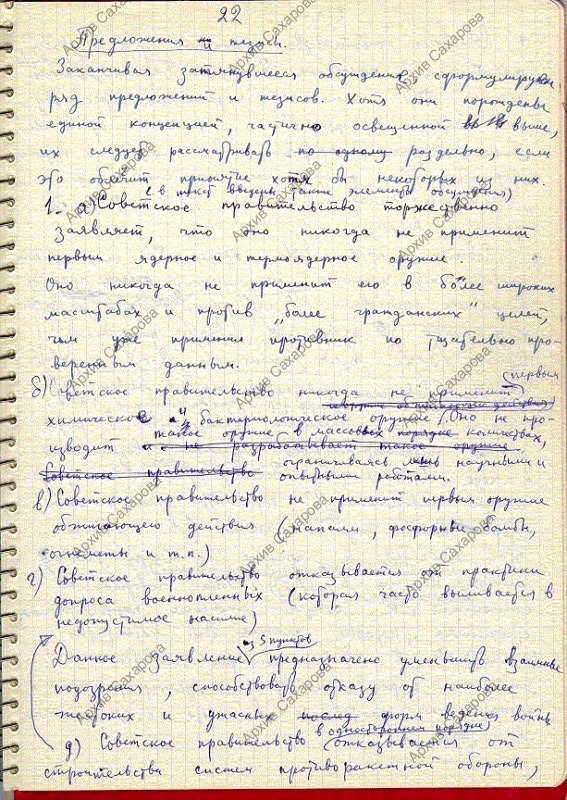 22
Предложения и тезисы.
Заканчивая затянувшееся обсуждение, сформулируем
ряд предложений и тезисов. Хотя они порождены
единой концепцией, частично освещенной выше,
их следует рассматривать по одному раздельно, если
это облегчит принятие хотя бы некоторых из них.
(в текст введены также элементы обсуждения)
1. а) Советское правительство торжественно
заявляет, что оно никогда не применит
первым ядерное и термоядерное оружие.
Оно никогда не применит его в более широких
масштабах и против „более гражданских" целей,
чем уже применил противник по тщательно про-
веренным данным.
б) Советское правительство никогда не применит первым
химическое и бактериологическое оружие. Оно не про-
изводит такое оружие в массовых порядке количествах,
и не разрабатывает такое оружие
Советское правительство ограничиваясь лишь научными и
опытными работами.
в) Советское правительство не применит первым оружие
обжигающего действия (напалм, фосфорные бомбы,
огнеметы и т.п.)
г) Советское правительство отказывается от практики
допроса военнопленных (которая часто выливается в
недопустимое насилие)
Данное заявление из 5 пунктов предназначено уменьшить взаимные
подозрения, способствовать отказу от наиболее
жестоких и ужасных послед форм ведения войны
д) Советское правительство в одностороннем порядке отказывается от
строительства систем противоракетной обороны,
Архив Сахарова